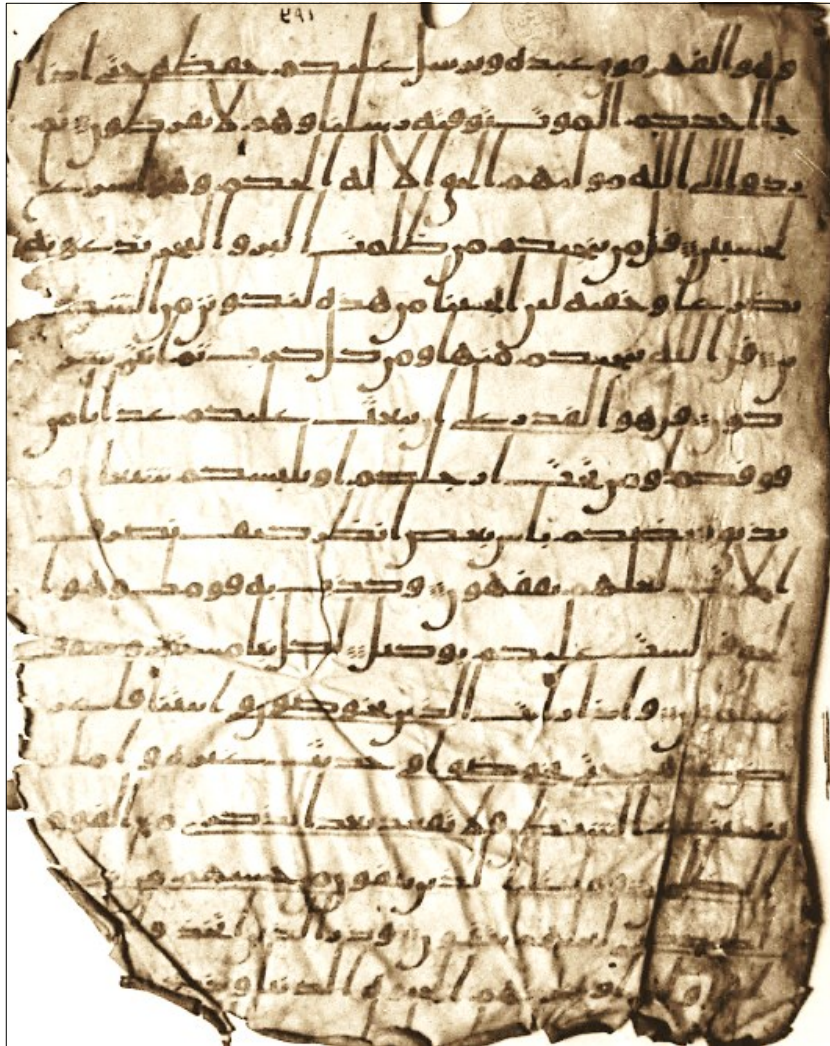 وهو القهر فوق عبده ويرسل عليكم حفظه حتى اذا
جا احدكم الموت توفته رسلنا وهم لا يفرطون ثم
ردوا الى الله مولهم الحق الا له الحكم وهو اسرع ا
لحسبين قل من ينجيكم من ظلمت البر والبحر تدعونه
تضرعا وخفيه لين انجيتنا من هذه لنكونن من الشكر
ين قل الله ينجيكم منها ومن كل كرب ثم انتم تشر
كون قل هو القدر على ان يبعث عليكم عذابا من
فوقكم او من تحت ارجلكم او يلبسكم شيعا و
يذيق بعضكم باس بعض انظر كيف نصرف
الايت لعلهم يفقهون وكذب به قومك وهو ا
لحق قل لست عليكم بوكيل لكل نبا مستقر وسوف
تعلمون واذا رايت الذين يخوضون في ايتنا فاعر
ض عنهم حتى يخوضوا في حديث غيره واما
ينسينك الشيطن فلا تقعد بعد الذكرى مع القوم
الظلمين وما على الذين يتقون من حسبهم من
لعلهم يتقون وذر الذين اتخذوا
وغرتهم الحيوه الدنيا وذكر